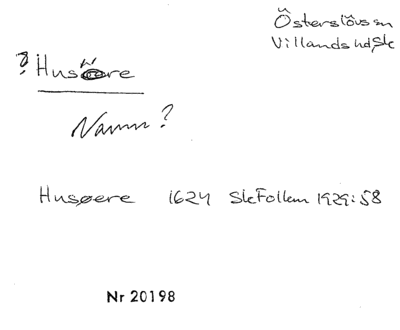 Österslövs sn
Villands hd, Sk
? Husöere
Namn?
Husøere 1624 SkFollem 1929:58
Nr 20198